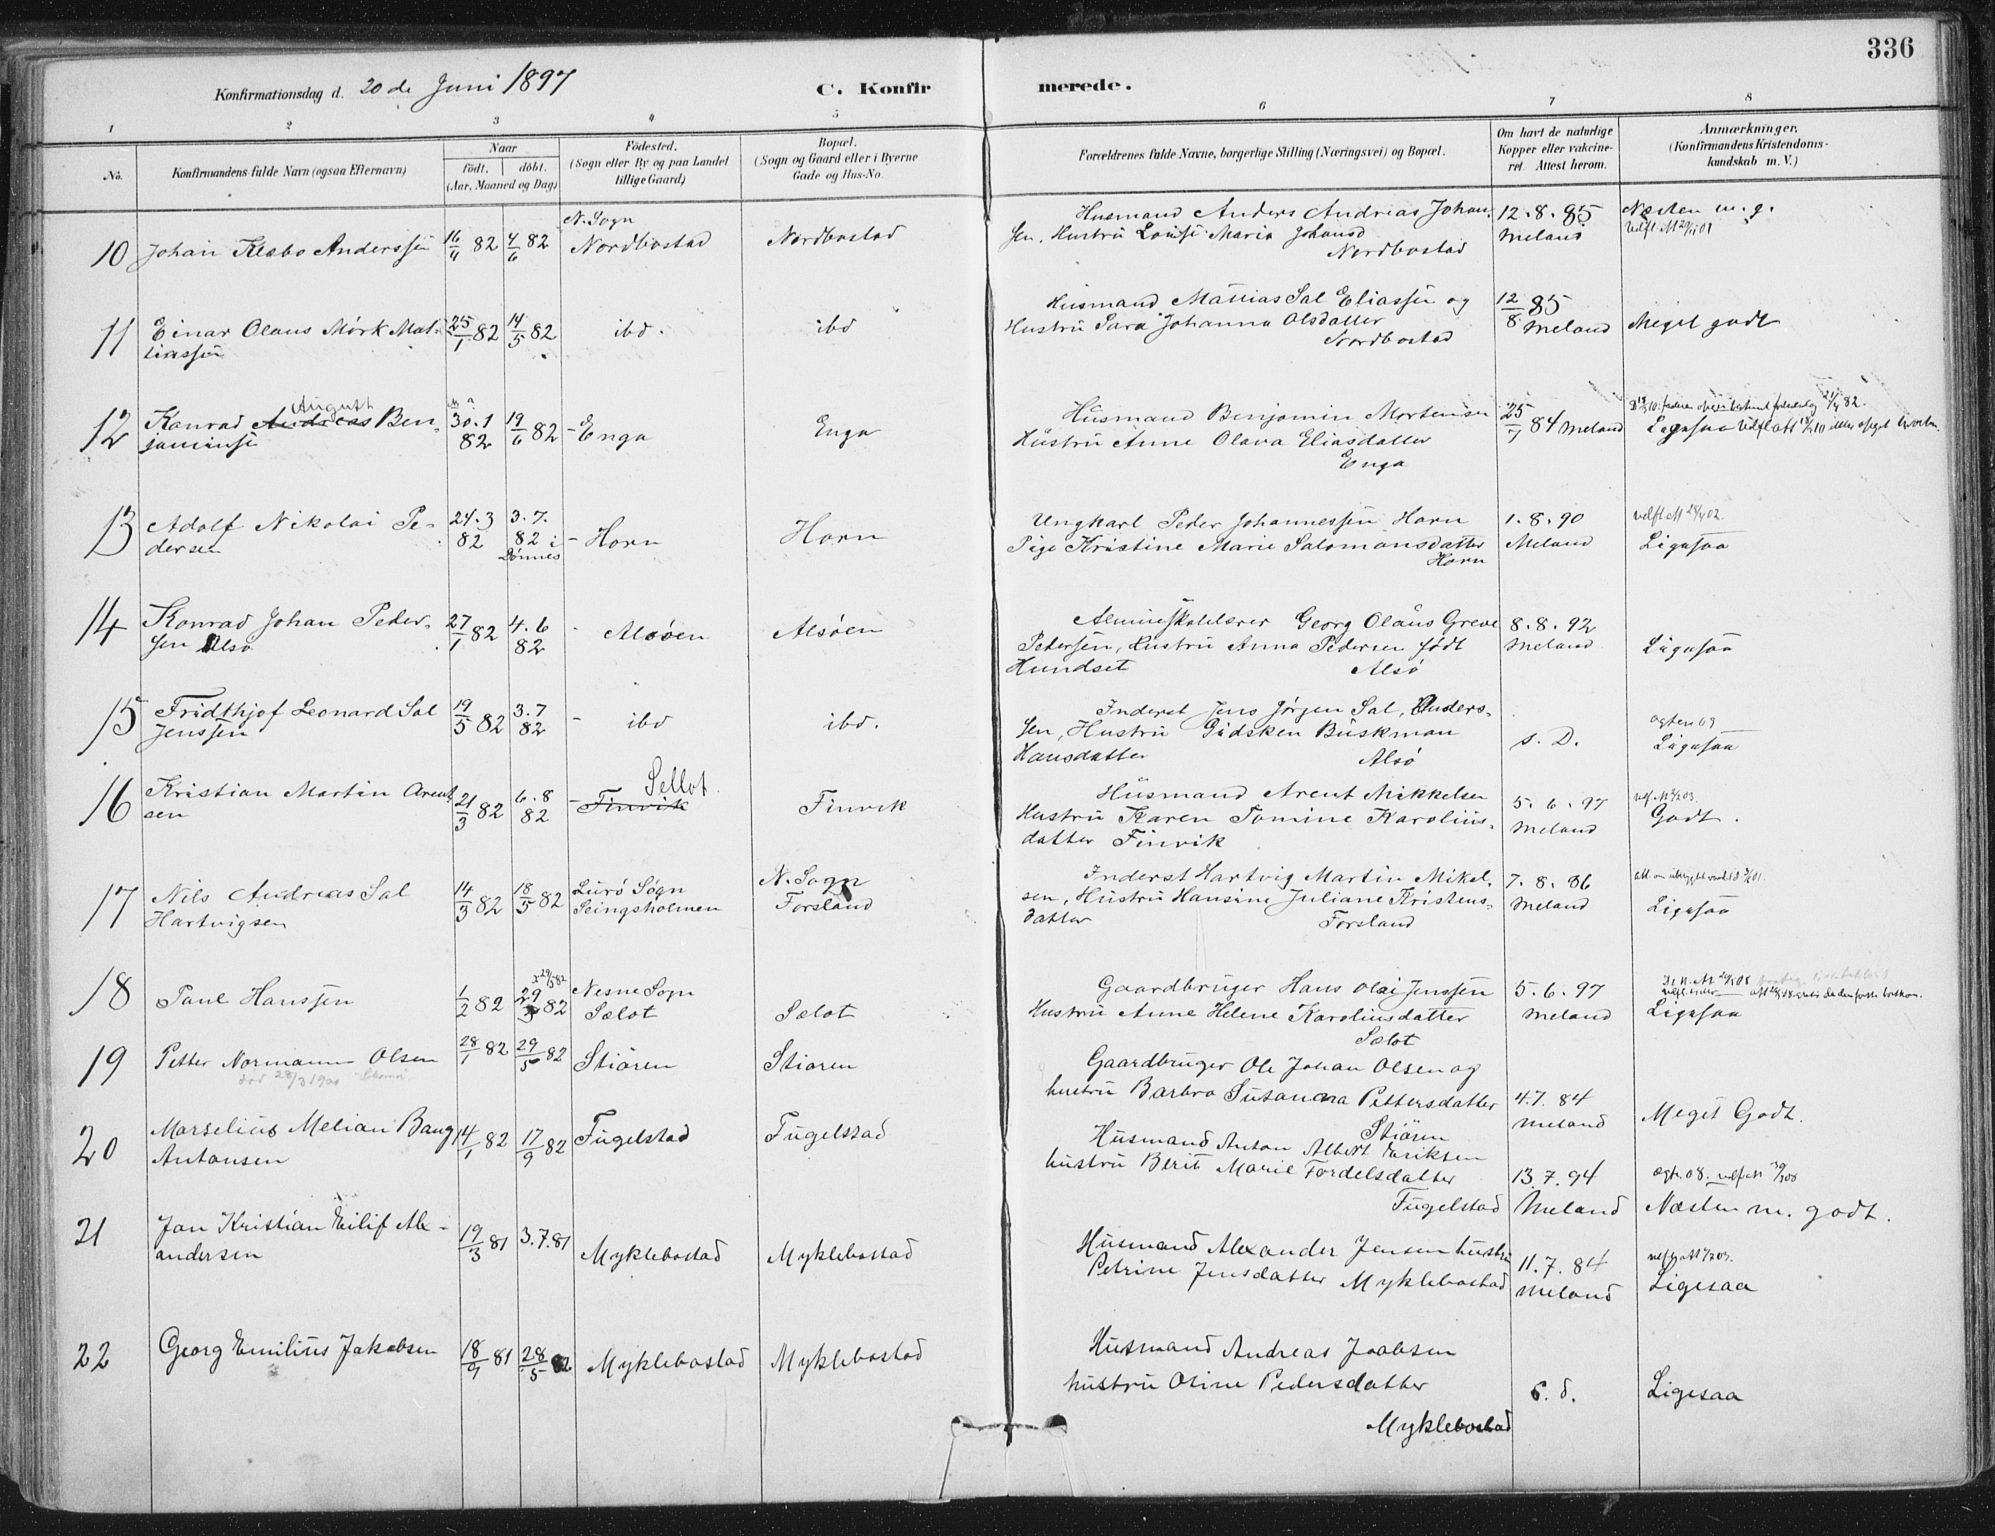 336
Konfirmationsdag d. 20de Juni 1897
C. Konfirmerede.
1 2 3 4 5 6 7 8
No. Konfirmandens fulde Navn (ogsaa Efternavn) Naar födt. döbt. (Aar, Maaned og Dag) Födested. (Sogn eller By og paa Landet tillige Gaard) Bopæl. (Sogn og Gaard eller i Byerne Gade og Hus-No. Forældrenes fulde Navne, borgerlige Stilling (Næringsvei) og Bopæl. Om havt de naturlige Kopper eller vaccineret. Attest herom. Anmærkninger. (Konfirmandens Kristendomskundskab m. V.)
N. Sogn Husmand Anders Andreas Johan- 12.8.85 Næsten m. g.
10 Johan Klæbo Anderssen 16/4 82 4/6 82 Nordbostad Nordbostad sen, Hustru Lovise Maria Johansd Meland
Nordbostad
Husmand Mattias Sal Eliassen og 12/8 85
11 Einar Olaus Mörk Mat- 25/1 82 14/5 82 ibd. ibd Hustru Sara Johanna Olsdatter Meland Meget godt
tiassen Nordbostad
August
12 Konrad Andreas Ben- 30.1 82 19/6 82 - Enga Enga Husmand Benjamin Mortensen 25/7 84 Meland Ligesaa
jaminsen Hustru Anne Olava Eliasdatter
Enga
13 Adolf Nikolai Pe- 24.3 82 3.7. 82 i Dönnes - Horn Horn Ungkarl Peder Johannessen Horn 1.8.90
dersen Pige Kristine Marie Salomonsdatter Meland Ligesaa
Horn
14 Konrad Johan Peder- 27/1 82 4.6 82 - Alsöen Alsöen Almueskolelærer Georg Olaus Greve 8.8.92
sen Alsö Pedersen, Hustru Anna Pedersen födt Meland Ligesaa
Hundset Alsö
15 Fridthjof Leonard Sal 19/5 82 3.7 82 - ibd ibd. Inderst Jens Jörgen Sal, Anders-
Jenssen sen, Hustru Gidsken Buskman s. D. Ligesaa
Hansdatter Alsö
Sellot.
16 Kristian Martin Arent 21/3 82 6.8 82 - Finvik Finvik Husmand Arent Mikkelsen 5.6.97
sen Hustru Karen Tomine Karolius- Meland Godt.
datter Finvik
17 Nils Andreas Sal 14/3 82 18/5 82 Lurö Sogn N. Sogn Inderst Hartvig Martin Mikel- 7.8.86
Hartvigsen Seingsholmen Forsland sen, Hustru Hansine Juliane Kristens- Meland Ligesaa
datter Forsland
18 Paul Hanssen 1/2 82 29 82 Nesne Sogn Gaardbruger Hans Olai Jenssen 5.6.97
Sælot Sælot Hustru Anne Helene Karoliusdatter Meland Ligesaa
Sælot
19 Petter Normann Olsen 28/1 82 29/5 82 Stiören Stiören Gaardbruger Ole Johan Olsen og
död 28/3 1900 hustru Barbro Susanna Pettersdatter 4.7.84 Meget Godt.
Stiören Meland
20 Marselius Melian Baug 14/1 82 17/9 82 Fugelstad Fugelstad Husmand Anton Albert Eriksen
Antonsen hustru Berit Marie Fordelsdatter 13.7.94
Fugelstad Meland Næsten m. godt.
21 Jan Kristian Eilif Alex- 19/3 81 3.7.81 Myklebostad Myklebostad Husmand Alexander Jensen hustru 11.7.84
andersen Petrine Jensdatter Myklebostad Meland Ligesaa
22 Georg Emilius Jakobsen 18/9 81 28/5 82 Myklebostad Myklebostad Husmand Andreas Jaobsen
hustru Osine Pedersdatter s. d. Ligesaa
Myklebostad